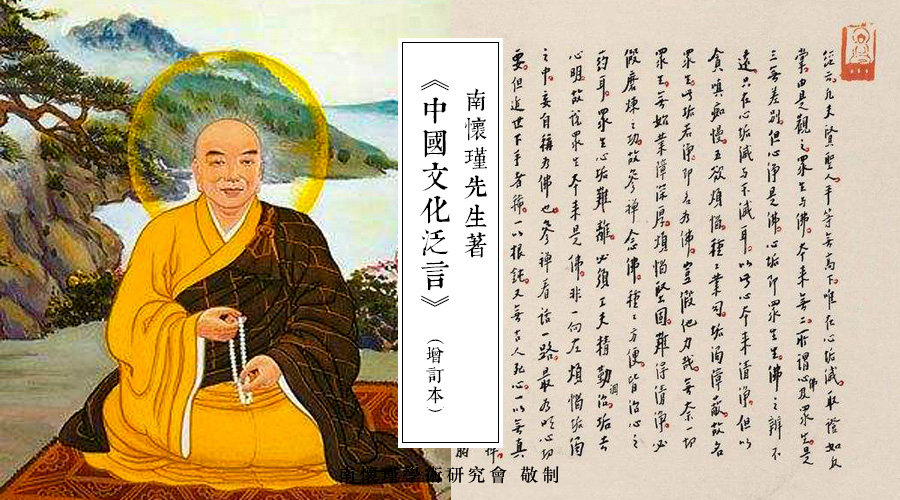 南懷瑾先生著
《中國文化泛言》
（增訂本）
經云。凡夫賢聖人。平等無高下。唯在心垢滅。取證如反
掌。由是觀之。眾生與佛。本來無二。所謂心佛及眾生。是
三無差別。但心淨是佛。心垢即眾生。生佛之辨。不
遠。只在心垢滅與不滅耳。以此心本來清淨。但以
貪嗔痴慢五欲煩惱種種業習。垢濁障蔽。故名
眾生。此垢若淨。即名為佛。豈假他力哉。無奈一切
眾生。無始業障深厚。煩惱堅固。難得清淨。必
假磨煉之功。故參禪念佛種種方便。皆治心之
药耳。眾生心垢難離。必須工夫精勤調治。垢去
心明。故說眾生本來是佛。非一向在煩惱垢濁
之中。妄自稱為佛也。參禪看話一路。最為明心切
要。但近世下手者稀。一以根鈍。又無古人死心。一以無真
南懷瑾學術研究會 敬制